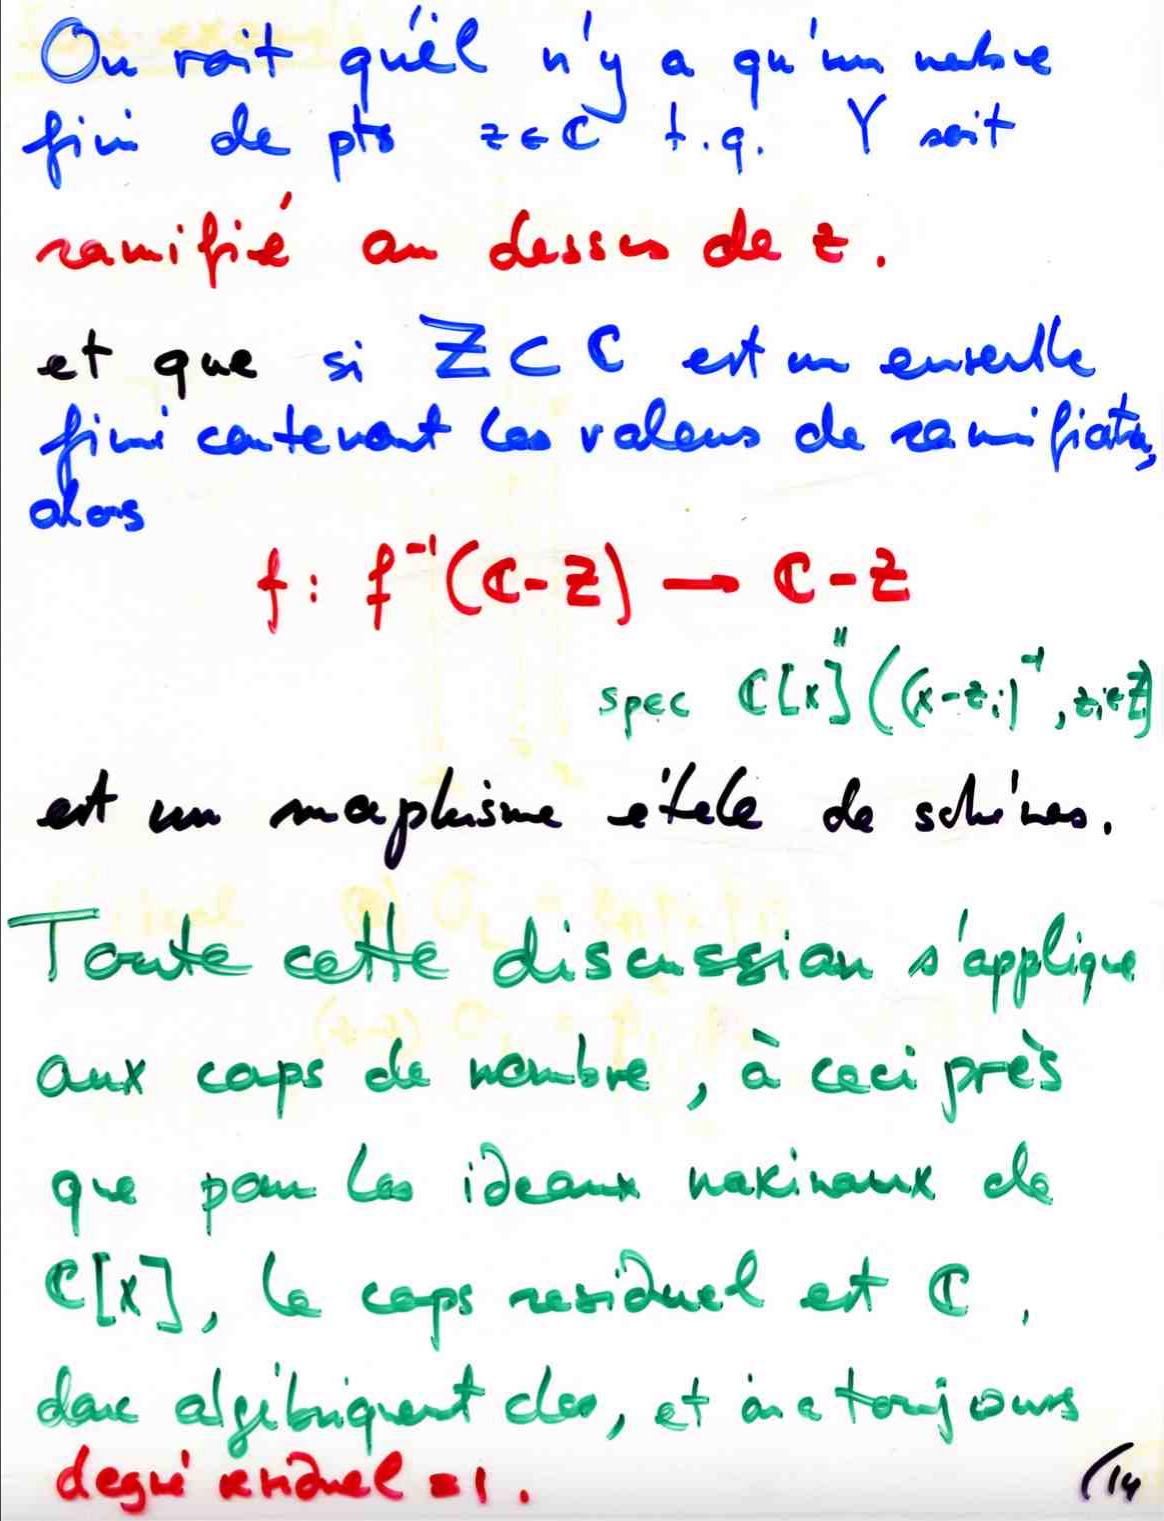 On voit qu'il n'y a qu'un nombre
fini de pts z ∈ ℂ t.q. Y soit
ramifié au dessus de z.
et que si Z ⊂ ℂ est un ensemble
fini contenant les valeurs de ramification,
alors
f : f⁻¹(ℂ-Z) → ℂ-Z
"
spec ℂ[x]((x-zᵢ)⁻¹, zᵢ∈Z)
est un morphisme étale de schémas.
Toute cette discussion s'applique
aux corps de nombre, à ceci près
que pour les idéaux maximaux de
ℂ[x], le corps résiduel est ℂ,
donc algébriquement clos, et on a toujours
degré résiduel = 1.
(14